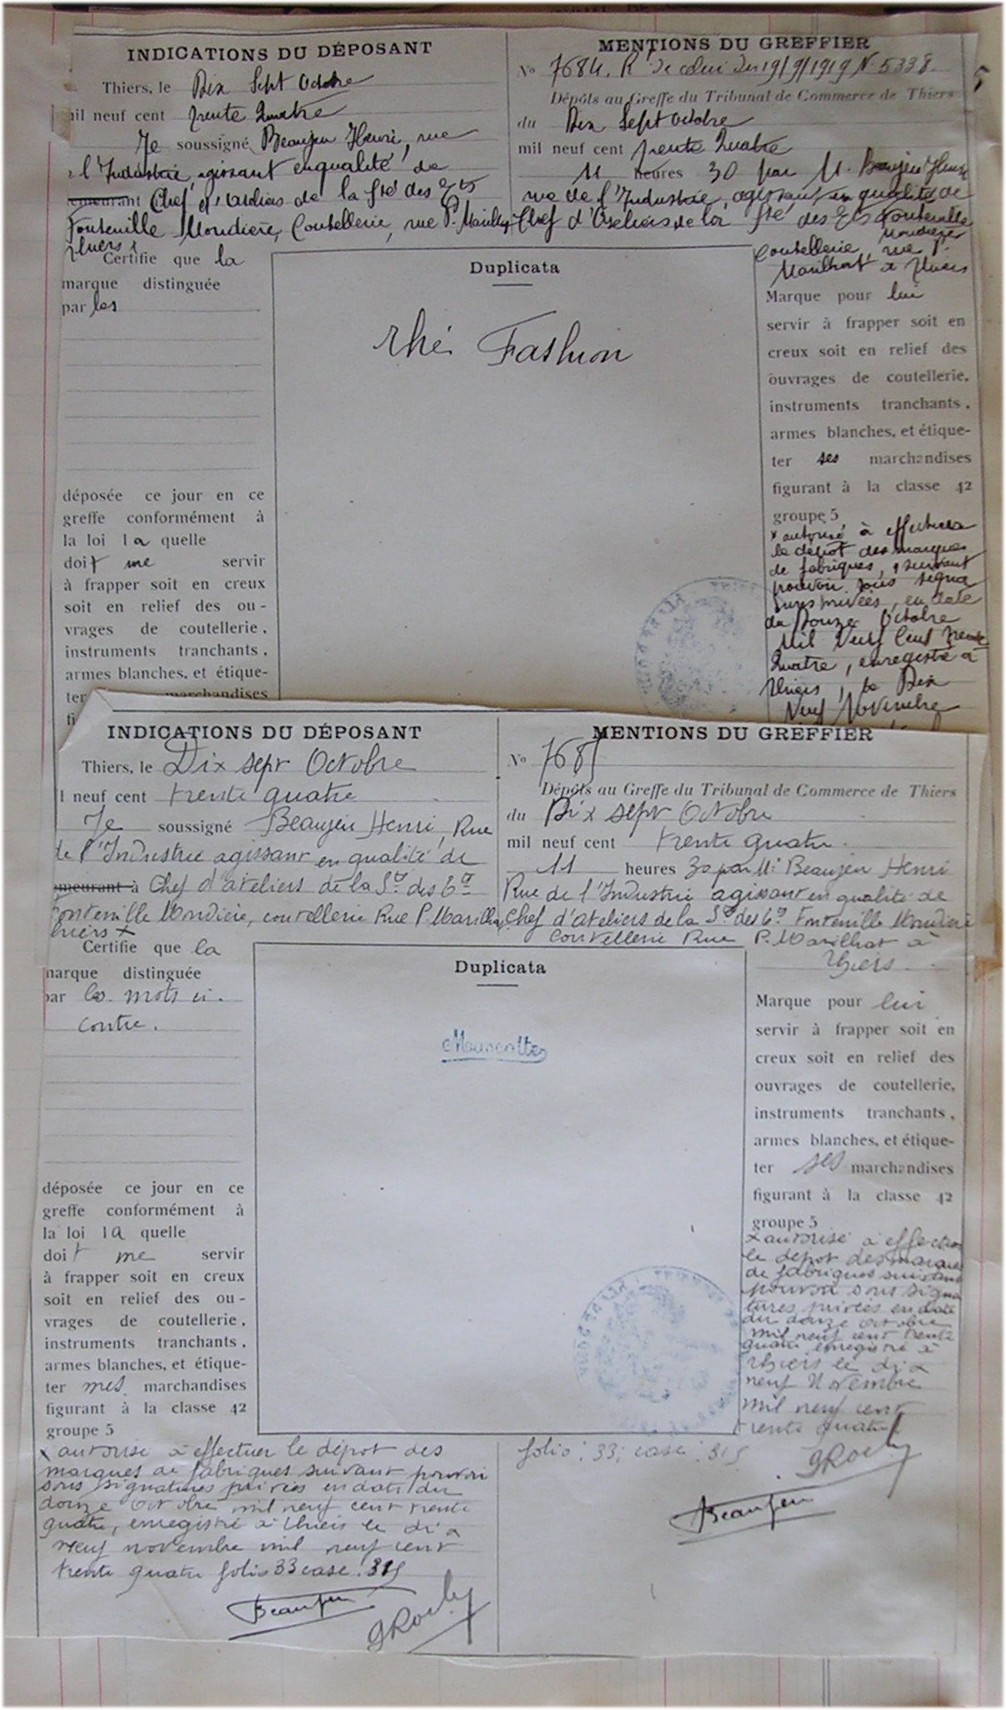 INDICATIONS DU DÉPOSANT
Thiers, le Dix Sept Octobre
mil neuf cent trente Quatre
Je soussigné Beaujeu Henri, rue
de l'Industrie, agissant en qualité de
Chef d'Ateliers de la Sté des Ets
Fontenille Mondière, Coutellerie, rue P. Marilhat
Thiers x
Certifie que la
marque distinguée
par les
déposée ce jour en ce
greffe conformément à
la loi la quelle
doit me servir
à frapper soit en creux
soit en relief des ou-
vrages de coutellerie,
instruments tranchants,
armes blanches, et étique-
ter marchandises
MENTIONS DU GREFFIER
No 7684. Rt de celui du 19/9/1919 N. 5338.
Dépôts au Greffe du Tribunal de Commerce de Thiers
du Dix Sept Octobre
mil neuf cent trente Quatre
11 heures 30 par M. Beaujeu Henri
rue de l'Industrie, agissant en qualité de
Chef d'Ateliers de la Sté des Ets Fontenille
Mondière
Coutellerie, rue P.
Marilhat à Thiers
Duplicata
Fashion
Marque pour lui
servir à frapper soit en
creux soit en relief des
ouvrages de coutellerie,
instruments tranchants,
armes blanches, et étique-
ter ses marchandises
figurant à la classe 42
groupe 5
x autorisé à effectuer
le dépôt des marques
de fabriques, suivant
pouvoir sous signa
tures privées, en date
du Douze Octobre
Mil Neuf Cent trente
Quatre, enregistré à
Thiers, le Dix
Neuf Novembre
INDICATIONS DU DÉPOSANT
Thiers, le Dix sept Octobre
l neuf cent trente quatre
Je soussigné Beaujeu Henri, Rue
de l'Industrie agissant en qualité de
demeurant à Chef d'ateliers de la Sté des Ets
Fontenille Mondière, coutellerie Rue P. Marilhat
Thiers x
Certifie que la
marque distinguée
par les mots ci-
contre.
déposée ce jour en ce
greffe conformément à
la loi la quelle
doit me servir
à frapper soit en creux
soit en relief des ou-
vrages de coutellerie,
instruments tranchants,
armes blanches, et étique-
ter mes marchandises
figurant à la classe 42
groupe 5
x autorisé à effectuer le dépôt des
marques de fabriques suivant pouvoir
sous signatures privées en date du
douze octobre mil neuf cent trente
quatre, enregistré à Thiers le dix
neuf novembre mil neuf cent
trente quatre folio 33 case 315
Beaujeu
MENTIONS DU GREFFIER
No 7685
Dépôts au Greffe du Tribunal de Commerce de Thiers
du Dix sept Octobre
mil neuf cent trente quatre.
11 heures 30 par M. Beaujeu Henri
Rue de l'Industrie agissant en qualité de
Chef d'ateliers de la Sté des Ets Fontenille Mondière
Coutellerie Rue P. Marilhat à
Thiers
Duplicata
Marque pour lui
servir à frapper soit en
creux soit en relief des
ouvrages de coutellerie,
instruments tranchants,
armes blanches, et étique-
ter ses marchandises
figurant à la classe 42
groupe 5
x autorisé à effectuer
le dépôt des marques
de fabriques suivant
pouvoir sous signa
tures privées en date
du douze octobre
mil neuf cent trente
quatre enregistré à
Thiers le dix
neuf Novembre
mil neuf cent
trente quatre
folio : 33 ; case : 315
Beaujeu